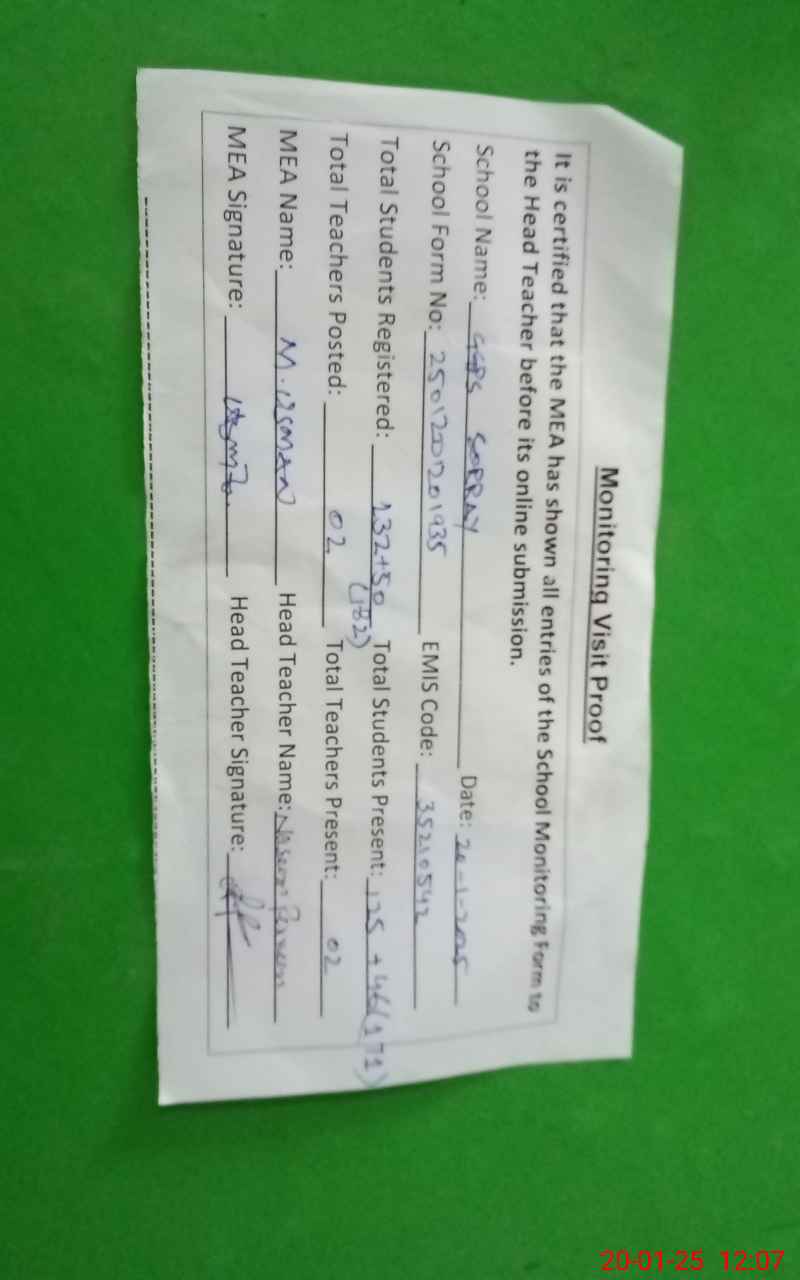 Monitoring Visit Proof
It is certified that the MEA has shown all entries of the School Monitoring Form to
the Head Teacher before its online submission.
School Name: GGPS SORRAY Date: 20-1-2025
School Form No: 2501200201935 EMIS Code: 35210542
Total Students Registered: 132+50 (182) Total Students Present: 125 + 46 (171)
Total Teachers Posted: 02 Total Teachers Present: 02
MEA Name: M. USMAN Head Teacher Name:
MEA Signature: Head Teacher Signature:
20-01-25 12:07